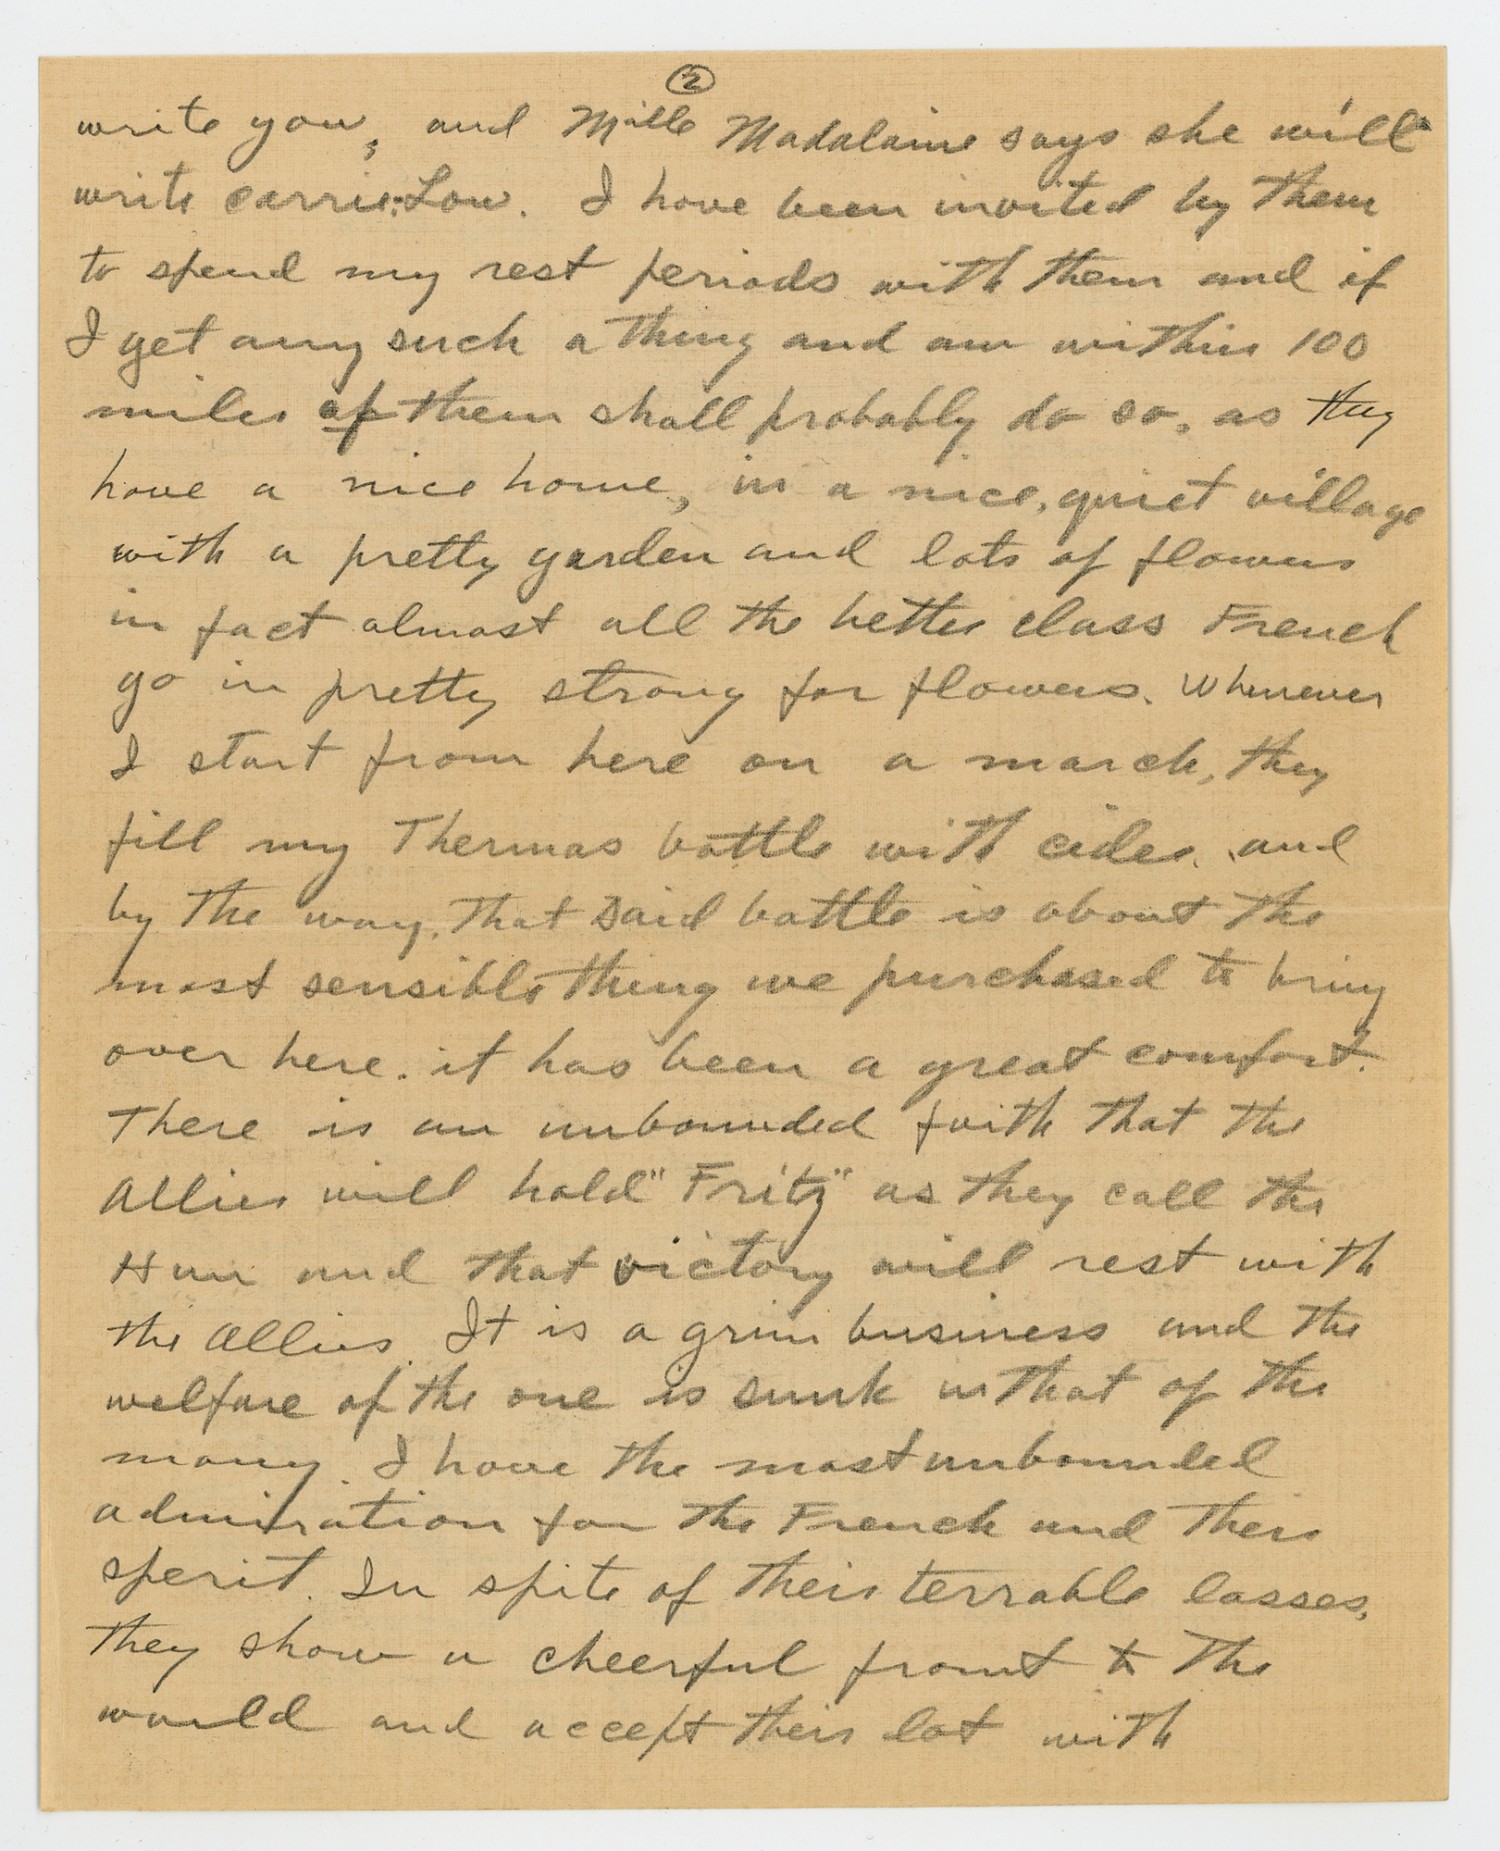 ②
write you, and Mille Madalaine says she will
write Carrie-Lou. I have been invited by them
to spend my rest periods with them and if
I get any such a thing and am within 100
miles of them shall probably do so, as they
have a nice home, in a nice, quiet village
with a pretty garden and lots of flowers
in fact almost all the better class French
go in pretty strong for flowers. Whenever
I start from here on a march, they
fill my Thermos bottle with cider, and
by the way, that said bottle is about the
most sensible thing we purchased to bring
over here. it has been a great comfort.
There is an unbounded faith that the
Allies will hold "Fritz" as they call the
Hun and that victory will rest with
the Allies. It is a grim business and the
welfare of the one is sunk in that of the
many. I have the most unbounded
admiration for the French and their
sperit. In spite of their terrable losses,
they show a cheerful front to the
world and accept their lot with